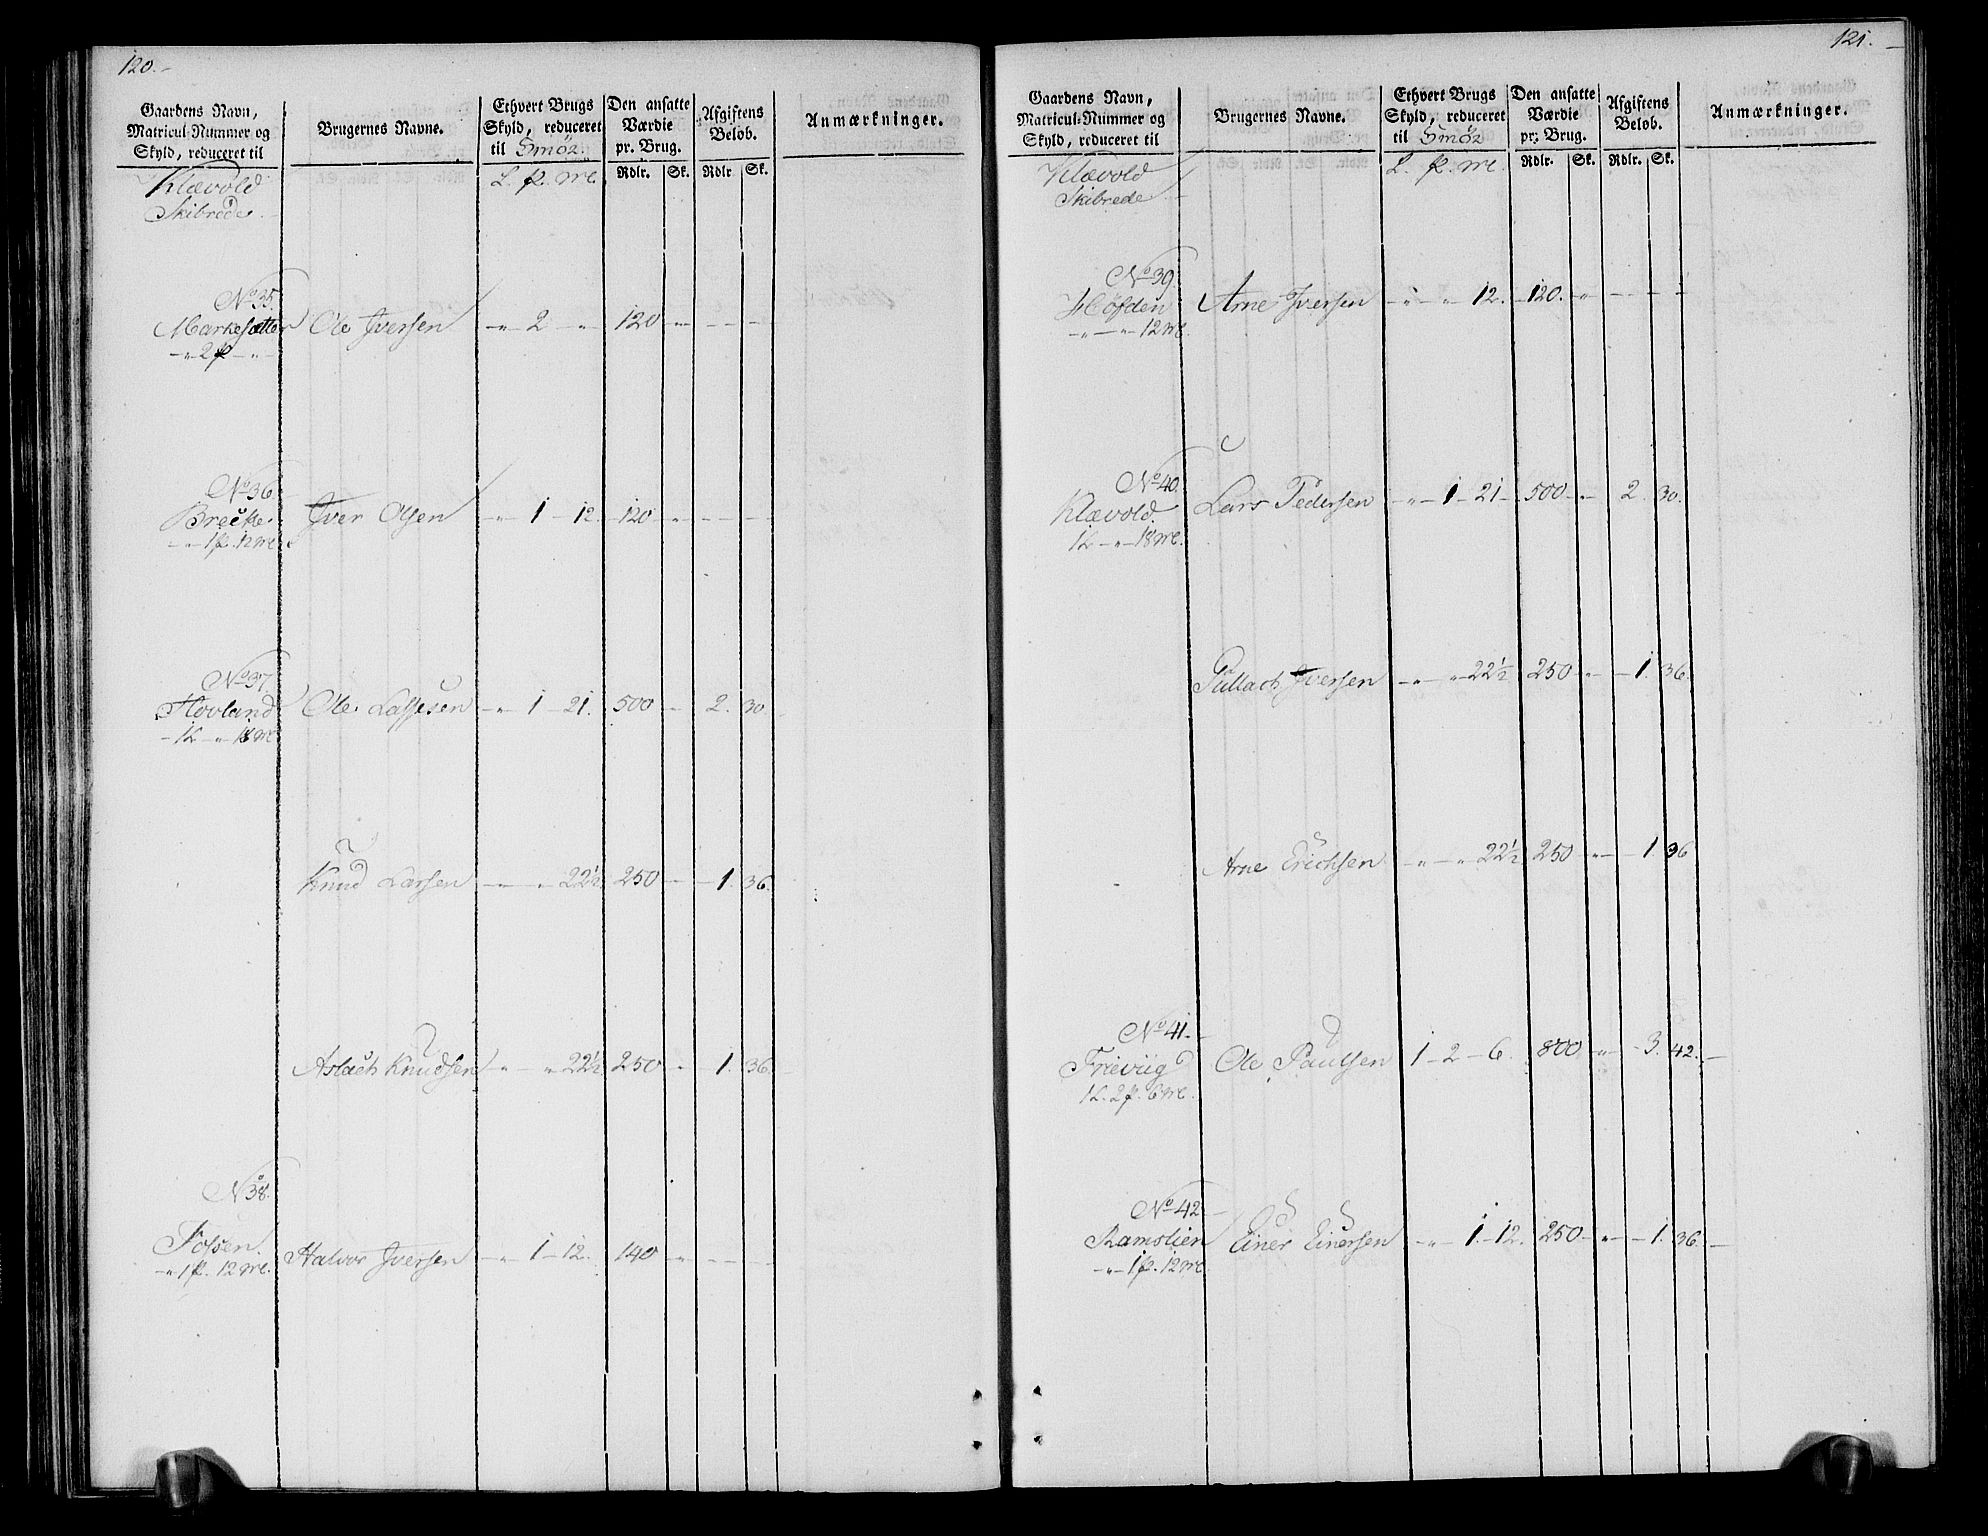 120.
Gaardens Navn, Matricul-Nummer og Skyld, reduceret til
Brugernes Navne.
Ethvert Brugs Skyld, reduceret til Smör
Den ansatte Værdie pr. Brug.
Afgiftens Beløb.
Anmærkninger.
L. p. mk.
Rdlr. Sk. Rdlr Sk.
Klævold
Skibrede
No 35
Markesætter Ole Iversen - " 2 - " 120 - " - - -
- " 2 p - " -
No 36
Brecke Iver Olsen - " 1 - 12. 120 - " - - -
- " 1 p. 12 mk.
No 37.
Hovland Ole Lassesen - " 1 - 21. 500 - " 2. 30.
- 1 L - " 18 mk
Knud Larsen - " - " 22½ 250 - " 1. 36.
Aslach Knudsen " - " 22½ 250 - " 1. 36.
No 38.
Folsen. Halvor Iversen - " 1 - 12. 140 - " - - -
- " 1 p. 12 mk.
121.
Gaardens Navn, Matricul-Nummer og Skyld, reduceret til
Brugernes Navne.
Ethvert Brugs Skyld, reduceret til Smör
Den ansatte Værdie pr. Brug.
Afgiftens Beløb.
Anmærkninger.
L. p. mk.
Rdlr. Sk. Rdlr. Sk.
Klævold
Skibrede
No 39.
Höfden Arne Iversen - " - " 12. 120. " - - -
- " - " 12 mk.
No 40.
Klævold. Lars Pedersen - " 1 - 21 - 500 - " 2. 30.
1 L - " - 18 mk.
Tullach Iversen - " - " 22½ 250 - " 1. 36.
Arne Erichsen - " - " 22½ 250 - " 1. 36
No 41.
Frieviig Ole Paulsen 1 - 2 - 6. 800. " - 3. 42.
1 L. 2 p. 6 mk.
No 42
Ramslien Einer Einersen - " 1. - 12. 250. - " - 1. 36.
- " 1 p. 12 mk